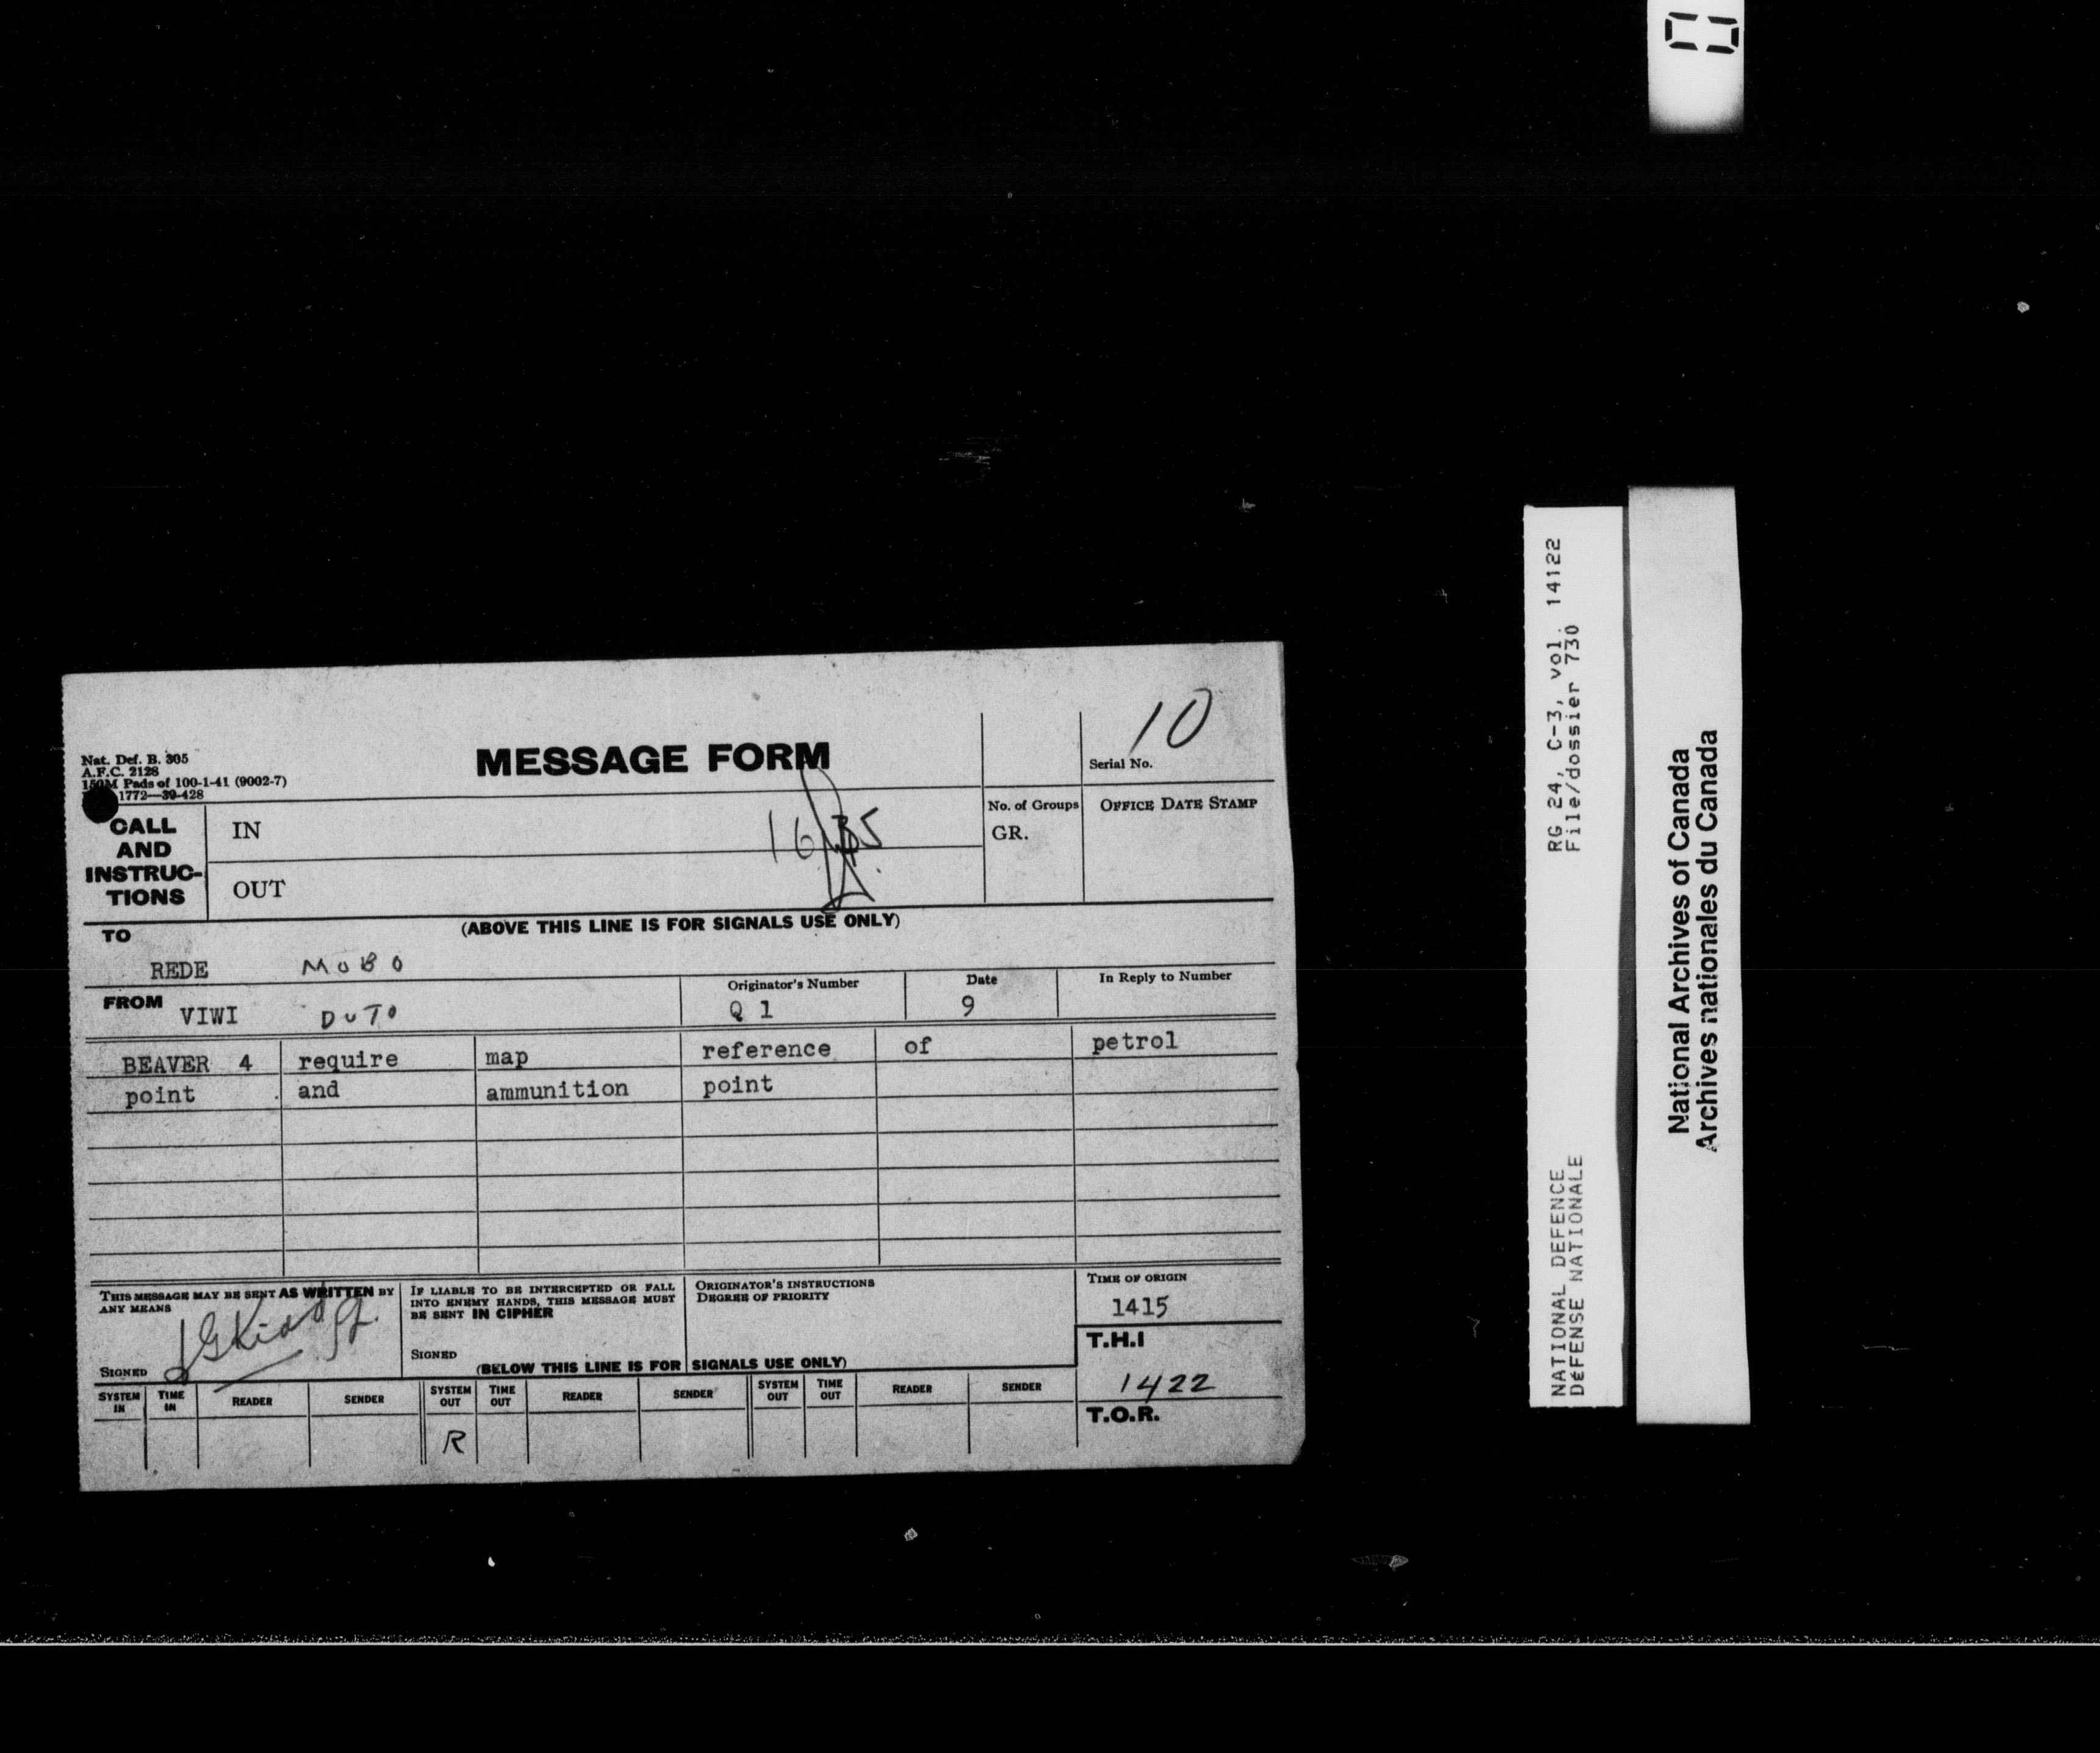 MESSAGE FORM
Nat. Def. B. 305
A.F.C. 2128
150M Pads of 100-1-41 (9002-7)
1772—39-428
10
Serial No.
CALL
AND
INSTRUC-
TIONS
IN
OUT
1635
No. of Groups
GR.
OFFICE DATE STAMP
(ABOVE THIS LINE IS FOR SIGNALS USE ONLY)
TO
REDE MOBO
FROM
VIWI DUTO
Originator's Number
Q 1
Date
9
In Reply to Number
BEAVER 4 require map reference of petrol
point and ammunition point
THIS MESSAGE MAY BE SENT AS WRITTEN BY
ANY MEANS
SIGNED
IF LIABLE TO BE INTERCEPTED OR FALL
INTO ENEMY HANDS, THIS MESSAGE MUST
BE SENT IN CIPHER
SIGNED
ORIGINATOR'S INSTRUCTIONS
DEGREE OF PRIORITY
TIME OF ORIGIN
1415
T.H.I
1422
T.O.R.
(BELOW THIS LINE IS FOR SIGNALS USE ONLY)
SYSTEM IN TIME IN READER SENDER SYSTEM OUT TIME OUT READER SENDER SYSTEM OUT TIME OUT READER SENDER
R
RG 24, C-3, vol. 14122
File/dossier 730
NATIONAL DEFENCE
DÉFENSE NATIONALE
National Archives of Canada
Archives nationales du Canada